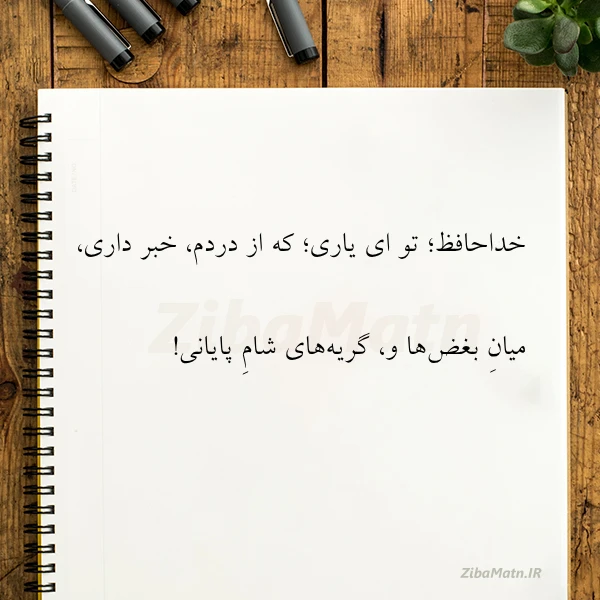 خداحافظ؛ تو ای یاری؛ که از دردم، خبر داری،
میانِ بغض‌ها و، گریه‌های شامِ پایانی!
ZibaMatn
ZibaMatn.IR